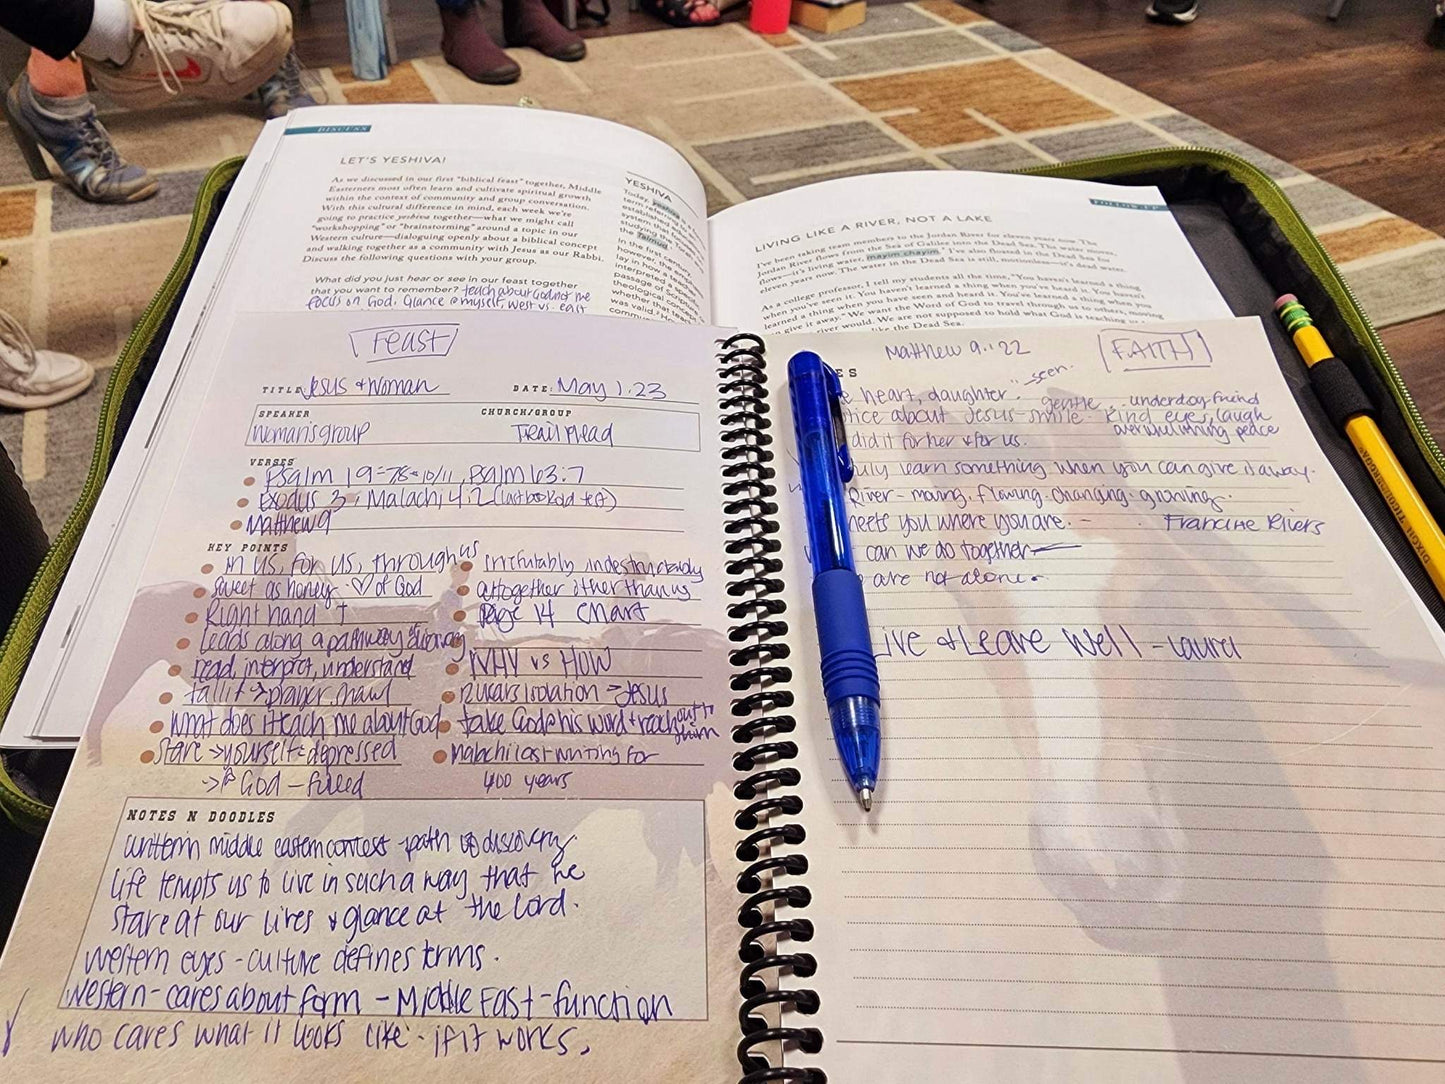 DISCUSS
LET'S YESHIVA!
As we discussed in our first "biblical feast" together, Middle
Easterners most often learn and cultivate spiritual growth
within the context of community and group conversation.
With this cultural difference in mind, each week we're
going to practice yeshiva together—what we might call
"workshopping" or "brainstorming" around a topic in our
Western culture—dialoguing openly about a biblical concept
and walking together as a community with Jesus as our Rabbi.
Discuss the following questions with your group.
What did you just hear or see in our feast together
that you want to remember? teach about God not me
focus on God. Glance @ myself, west vs. east
YESHIVA
Today, yeshiva
term referring to
established
studying
the Talmud
In the first century,
however, the
lay in how a
interpreted a
passage of Scripture,
theological
whether that
was valid.
FOLLOW UP
LIVING LIKE A RIVER, NOT A LAKE
I've been taking team members to the Jordan River for eleven years now. The
Jordan River flows from the Sea of Galilee into the Dead Sea. The water
flows—it's living water, mayim chayim. I've also floated in the Dead Sea for
eleven years now. The water in the Dead Sea is still, motionless—it's dead water.
As a college professor, I tell my students all the time, "You haven't learned a thing
when you've seen it. You haven't learned a thing when you've heard it. You haven't
learned a thing when you have seen and heard it. You've learned a thing when you
can give it away." We want the Word of God to travel through us to others, moving
river would. We are not supposed to hold what God is teaching us
like the Dead Sea.
Feast
TITLE: Jesus + Woman DATE: May 1.23
SPEAKER CHURCH/GROUP
Woman's group Trail Head
VERSES
Psalm 19 = 7-8 + 10/11, Psalm 63:7
Exodus 3, Malachi 4.2
Matthew 9
KEY POINTS
in us, for us, through us
sweet as honey ♡ of God
Right hand †
Leads along a pathway discovery
read, interpret, understand
tallit -> prayer shawl
What does it teach me about God
Stare -> yourself = depressed
-> God - filled
irrefutably indestructably
altogether other than us
Page 14 chart
WHY vs HOW
12 years isolation -> Jesus
take God @ his word + reach out to him
Malachi last writing for
400 years
NOTES N DOODLES
written middle eastern context - path of discovery.
Life tempts us to live in such a way that he
stare at our lives & glance at the Lord.
western eyes - culture defines terms.
Western - cares about form - Middle East - function
who cares what it looks like - if it works.
Matthew 9:22 FAITH
ES
heart, daughter." - seen.
about Jesus - smile gentle underdog friend kind eyes, laugh
did it for her & for us. overwhelming peace
learn something when you can give it away.
River - moving. flowing. changing. growing.
meets you where you are. - Francine Rivers
can we do together
are not alone.
Live & Leave Well - Laurel
DIXON TICONDEROGA